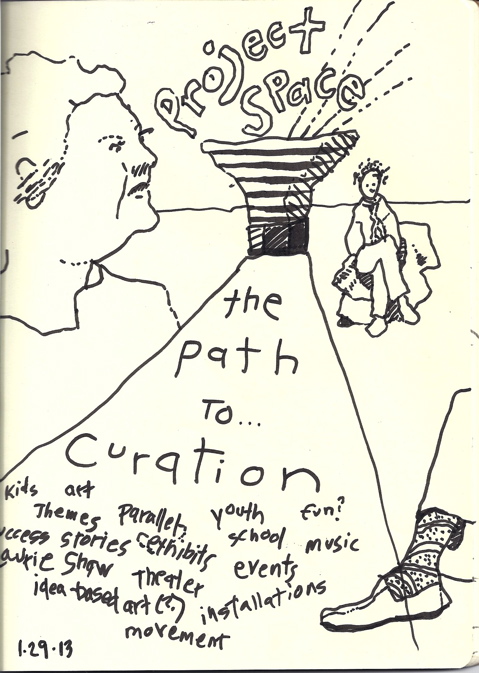 Project
Space
the
path
To...
Curation
Kids art
Themes Parallel youth fun?
success stories exhibits school music
Laurie Show Theater events
idea-based art (?) installations
movement
1.29.13